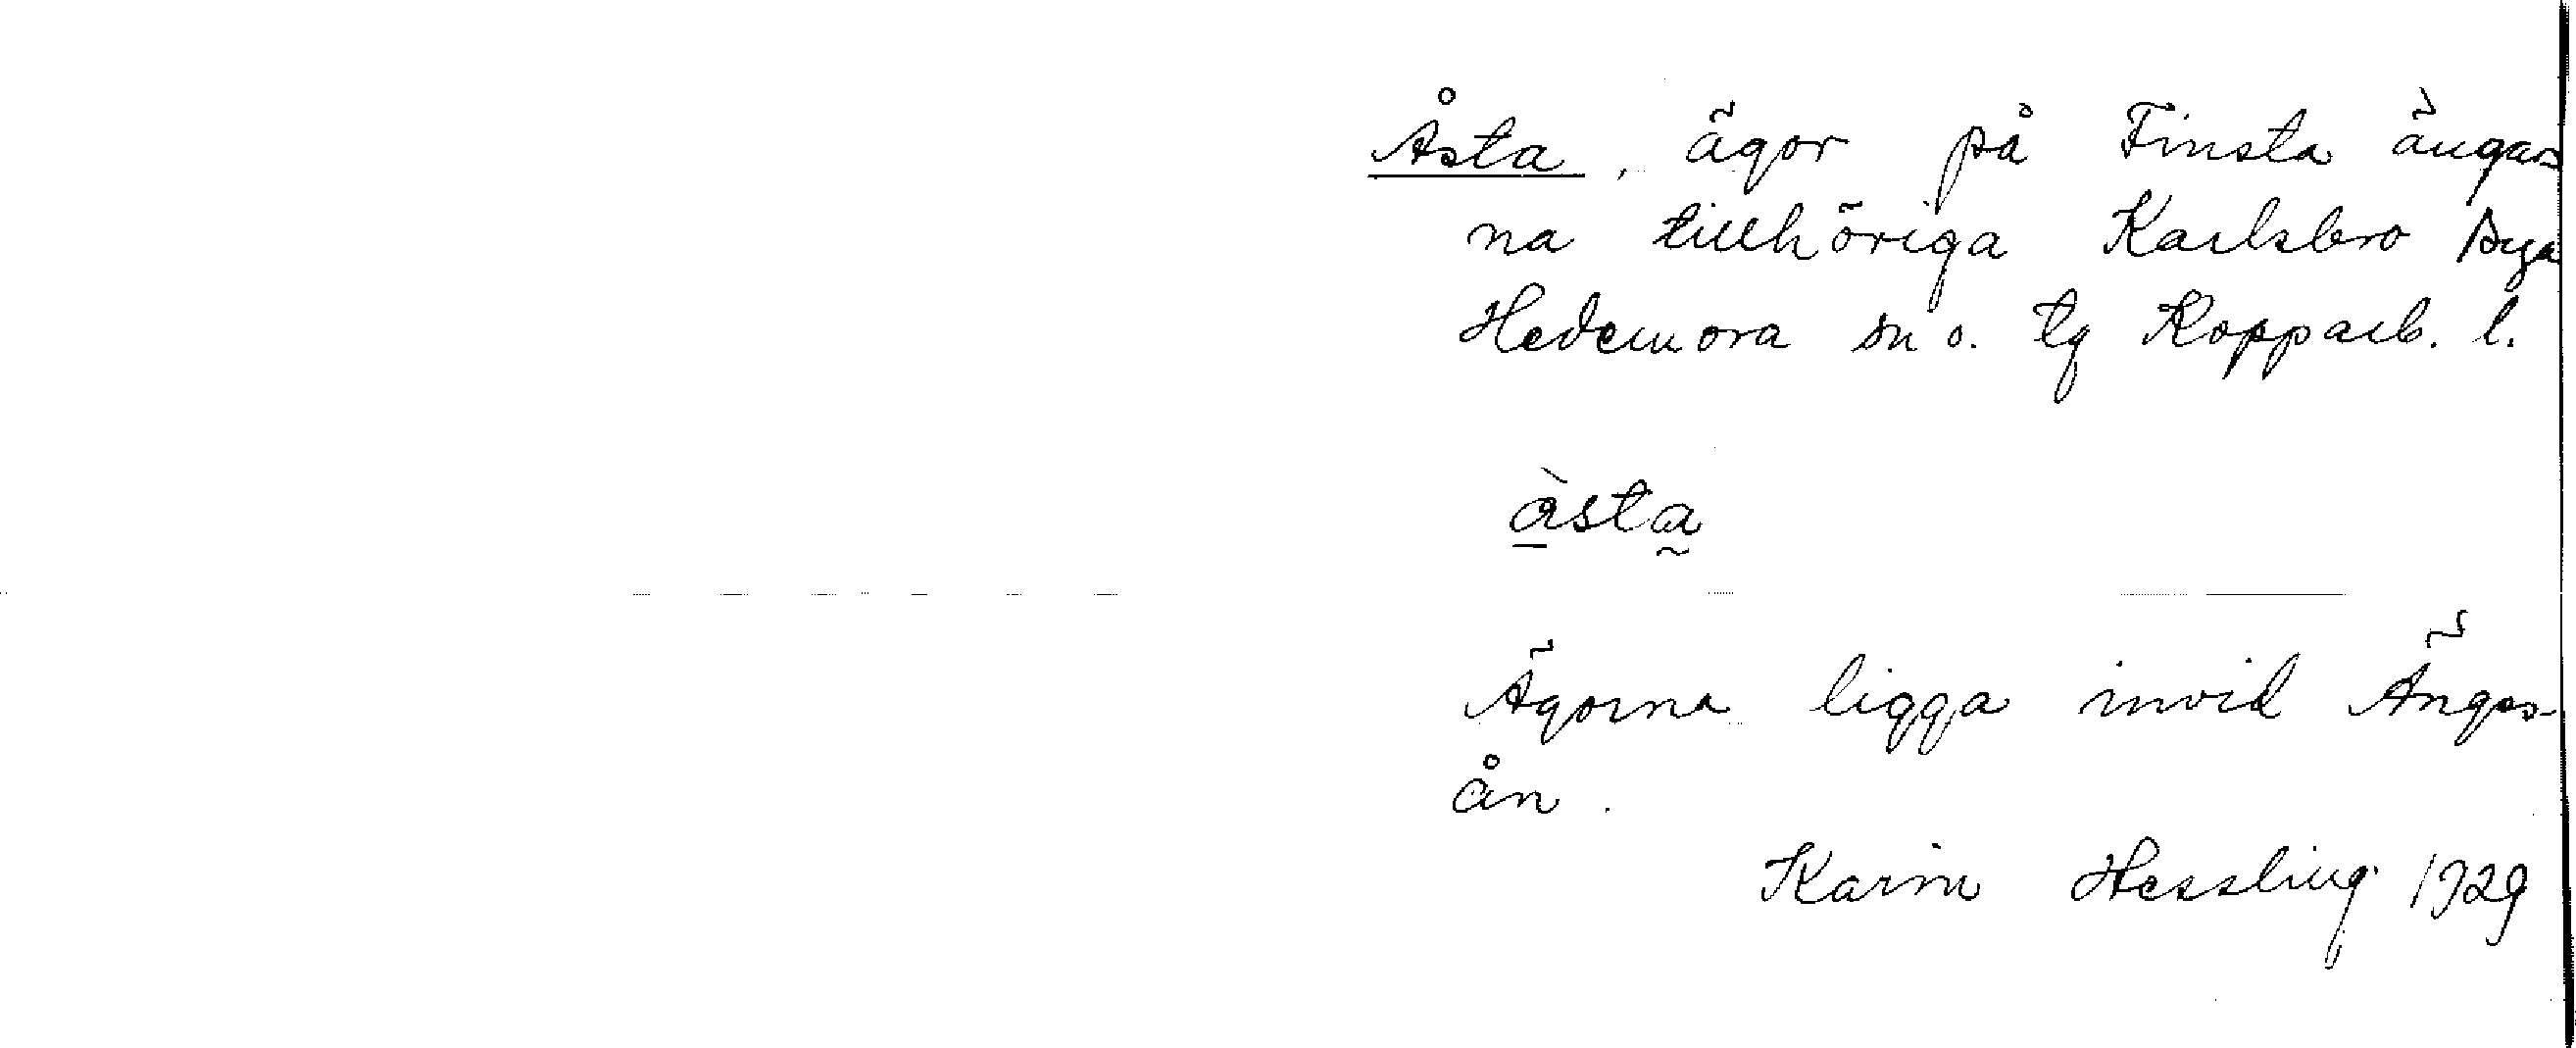 Åsta, ägor på Finsta ängar-
na tillhöriga Karlsbro
Hedemora sn o. tg Kopparb. l.
åsta
Ägorna ligga invid Ängs-
ån.
Karin Hessling 1929